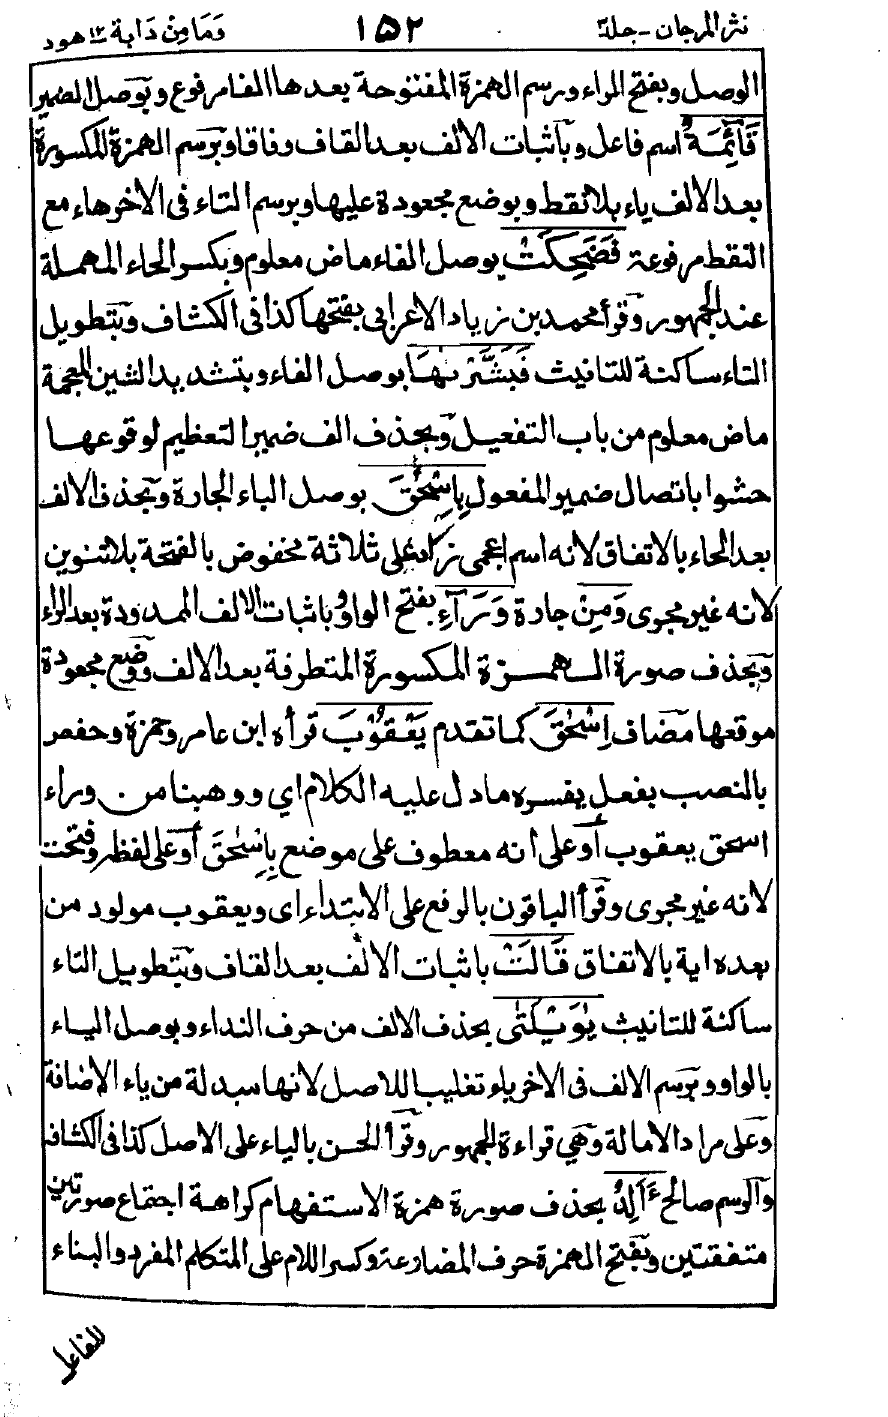 نثر المرجان - جلد٣ ١٥٢ وَمَا مِنْ دَابَة ١٢ هود
الوصل وبفتح الراء ورسم الهمزة المفتوحة بعدها الفا مرفوع وبوصل الضمير
قَآئِمَةٌ اسم فاعل وبآثبات الالف بعد القاف وفاقا وبرسم الهمزة المكسورة
بعد الالف ياء بلا نقط وبوضع مجعودة عليها وبرسم التاء فى الآخر هاء مع
النقط مرفوعة فَضَحِكَتْ بوصل الفاء ماض معلوم وبكسر الحاء المهملة
عند الجمهور وقرأ محمد بن زياد الاعرابى بفتحها كذا فى الكشاف وبتطويل
التاء ساكنة للتانيث فَبَشَّرْنٰهَا بوصل الفاء وبتشديد الشين المعجمة
ماض معلوم من باب التفعيل وبحذف الف ضمير التعظيم لوقوعها
حشوا باتصال ضمير المفعول بِاِسْحٰقَ بوصل الباء الجارة وبحذف الالف
بعد الحاء بالاتفاق لانه اسم اعجمى زائد على ثلاثة مخفوض بالفتحة بلا تنوين
لانه غير مجرى وَمِنْ جارة وَرَآءِ بفتح الواو وباثبات الالف الممدودة بعد الراء
وبحذف صورة الهمزة المكسورة المتطرفة بعد الالف ووضع مجعودة
موقعها مضاف اِسْحٰقَ كما تقدم يَعْقُوْبَ قرأه ابن عامر وحمزة وحفص
بالنصب بفعل يفسره ما دل عليه الكلام اي ووهبنا من وراء
اسحق يعقوب أو على أنه معطوف على موضع بِاِسْحٰقَ أو على لفظه وفتحت
لانه غير مجرى وقرأ الباقون بالرفع على الابتداء اى ويعقوب مولود من
بعده اية بالاتفاق قَالَتْ باثبات الالف بعد القاف وبتطويل التاء
ساكنة للتانيث يٰوَيْلَتٰى بحذف الالف من حرف النداء وبوصل الياء
بالواو وبرسم الالف فى الآخر ياء تغليبا للاصل لانها مبدلة من ياء الاضافة
وعلى مراد الامالة وهي قراءة الجمهور وقرأ الحسن بالياء على الاصل كذا فى الكشاف
والرسم صالح ءَاَلِدُ بحذف صورة همزة الاستفهام كراهة اجتماع صورتين
متفقتين وبفتح الهمزة حرف المضارعة وكسر اللام على المتكلم المفرد والبناء
للفاعل